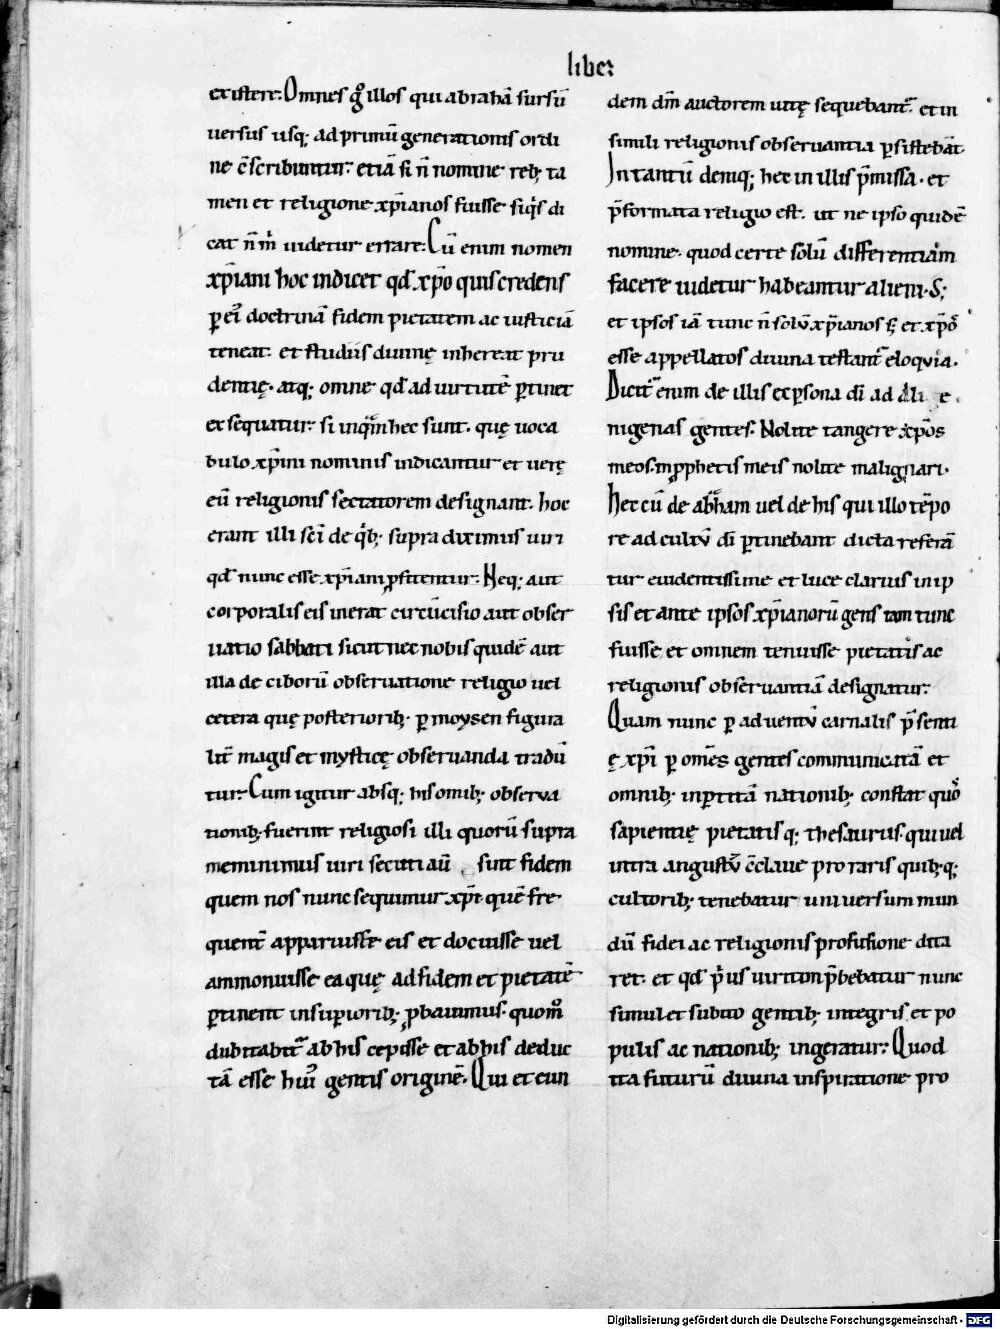 liber
existere. Omnes g̊ illos qui abrahā sursū
uersus usq; ad primū generationis ordi
ne c̄scribuntur. etiā si n̄ nomine reb; ta
men et religione xp̄ianos fuisse siq̇s di
cat n̄ m̄ uidetur errare. Cū enim nomen
xp̄iani hoc indicet qd̄ xp̄o quis credens
ꝑ ei' doctrinā fidem pietatem ac iusticiā
teneat. et studiis diuinę inhereat pru
dentię. atq; omne qd̄ ad uirtutē ꝑtinet
exsequatur. si inquā hec sunt. quę uoca
bulo xp̄ini nominis indicantur et uerę
eū religionis sectatorem designant. hoc
erant illi sc̄i de q̇b; supra diximus uiri
qd̄ nunc esse xp̄iani ꝓfitentur. Neq; aut
corporalis eis inerat circūcisio aut obser
uatio sabbati sicut nec nobis quidē aut
illa de ciborū obseruatione religio uel
cetera quę posteriorib; ꝑ moysen figura
lit̄ magis et mysticę obseruanda tradū
tur. Cum igitur absq; his om̄ib; obserua
tionib; fuerint religiosi illi quorū supra
meminimus uiri secuti aū sunt fidem
quem nos nunc sequimur xp̄i quē fre
quent̄ apparuisse eis et docuisse uel
ammonuisse ea quę ad fidem et pietatē
ꝑtinent in suꝑiorib; ꝓbauimus. quom̊
dubitabit̄ ab his cepisse et ab his deduc
tā esse hui' gentis originē. Qui et eun
dem dm̄ auctorem uitę sequebant̄. et in
simili religionis obseruantia ꝑsistebāt.
In tantū deniq; hec in illis p̄missa. et
p̄formata religio est. ut ne ipso quidē
nomine. quod certe solū differentiam
facere uidetur habeantur alieni. S;
et ipsos iā tunc n̄ solū xp̄ianos s; et xp̄os
esse appellatos diuina testant̄ eloquia.
Dicit̄ enim de illis ex ꝑsona di ad ali e
nigenas gentes. Nolite tangere xp̄os
meos. in ꝓphetis meis nolite malignari.
Hec cū de abrāham uel de his qui illo tēpo
re ad cultū di ꝑtinebant dicta referā
tur euidentissime et luce clarius in ip
sis et ante ipsos xp̄ianorū gens iam tunc
fuisse et omnem tenuisse pietatis ac
religionis obseruantiā designatur.
Quam nunc ꝑ aduentū carnalis p̄senti
ę xp̄i ꝑ om̄es gentes communicatā et
omnib; inꝑtitā nationib; constat quo
sapientię pietatis q; thesaurus. qui uel
intra angustū c̄claue pro raris quib; q;
cultorib; tenebatur uniuersum mun
dū fidei ac religionis profusione dita
ret. et qd̄ ṗus uiritim p̄bebatur nunc
simul et subito gentib; integris et po
pulis ac nationib; ingeratur. Quod
ita futurū diuina inspiratione pro
Digitalisierung gefördert durch die Deutsche Forschungsgemeinschaft - DFG